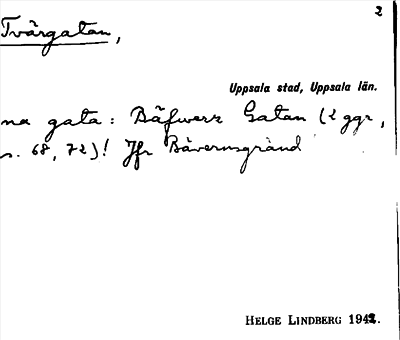 2
Tvärgatan,
Uppsala stad, Uppsala län.
na gata: Bäfwerz Gatan (2 ggr,
s. 68, 72)! Jfr Bävernsgränd
HELGE LINDBERG 1942.